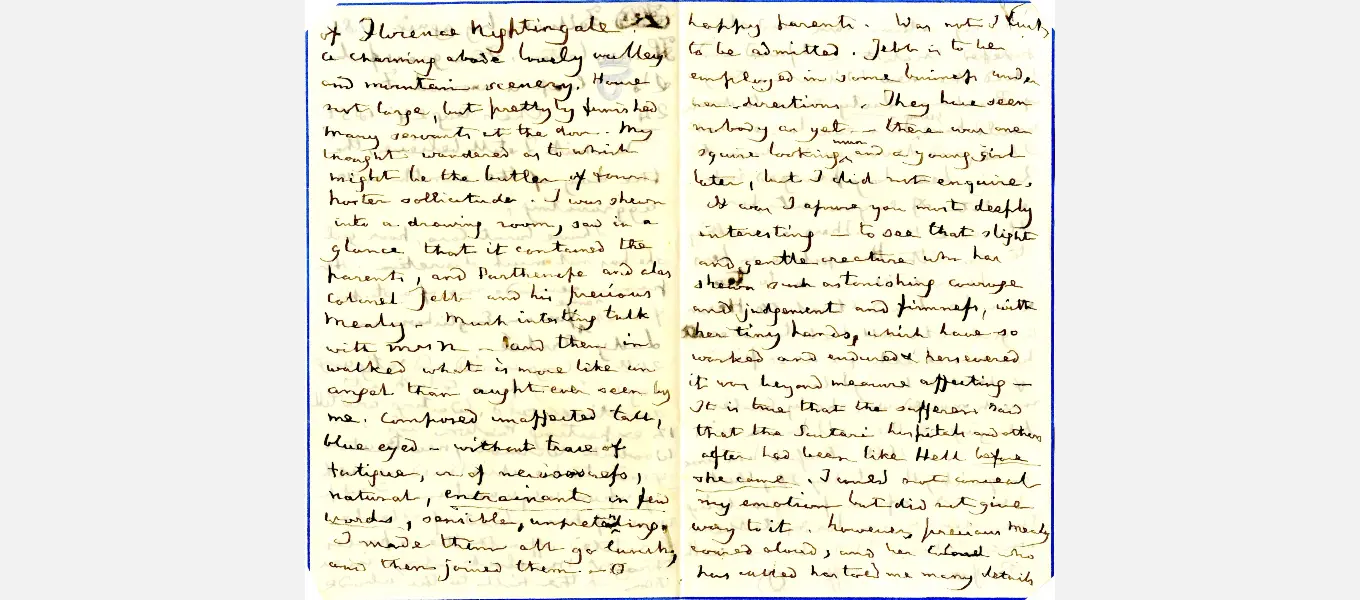 of Florence Nightingale.
a charming abode lovely valleys
and mountain scenery. House
not large, but prettyly furnished
many servants at the door. My
thought wandered as to which
might be the butler of town
hoster sollicitude. I was shewn
into a drawing room, saw in a
glance that it contained the
parents, and Parthenope and alas
Colonel Jebb and his precious
Mealy. Much intesting talk
with Mrs N — and then in
walked what is more like an
angel than aught ever seen by
me. Composed unaffected tall,
blue eyed — without trace of
fatigue, or of nervousness,
natural, entrainant in few
words, sensible, unpretending.
I made them all go lunch,
and then joined them. — O
happy parents. Was not I lucky
to be admitted. Jebb is to be
employed in some business under
her directions. They have seen
nobody as yet — there was one
squire looking man and a young girl
later, but I did not enquire.
It was I assure you most deeply
interesting — to see that slight
and gentle creature who has
shewn such astonishing courage
and judgement and firmness, with
her tiny hands, which have so
worked and endured & persevered
it was beyond measure affecting —
It is true that the sufferers said
that the Scutari hospitals and others
after had been like Hell before
she came. I could not conceal
my emotion but did not give
way to it. However, precious Mealy
aloud, and her Colonel who
has called has told me many details